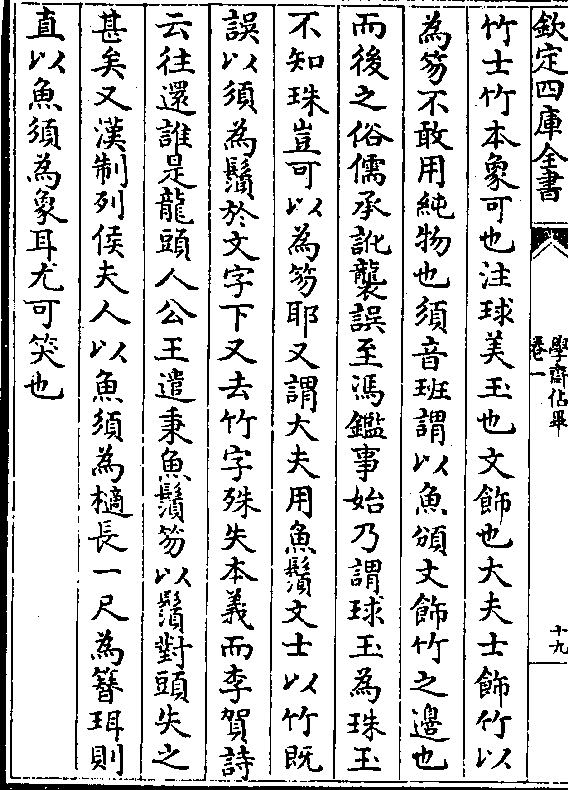 欽定四庫全書
學齋佔畢
卷一
十九
竹士竹本象可也注球美玉也文飾也大夫士飾竹以
為笏不敢用純物也須音班謂以魚頒文飾竹之邊也
而後之俗儒承訛襲誤至馮鑑事始乃謂球玉為珠玉
不知珠豈可以為笏耶又謂大夫用魚鬚文士以竹既
誤以須為鬚於文字下又去竹字殊失本義而李賀詩
云往還誰是龍頭人公王遣秉魚鬚笏以鬚對頭失之
甚矣又漢制列侯夫人以魚須為擿長一尺為簪珥則
直以魚須為象耳尤可笑也